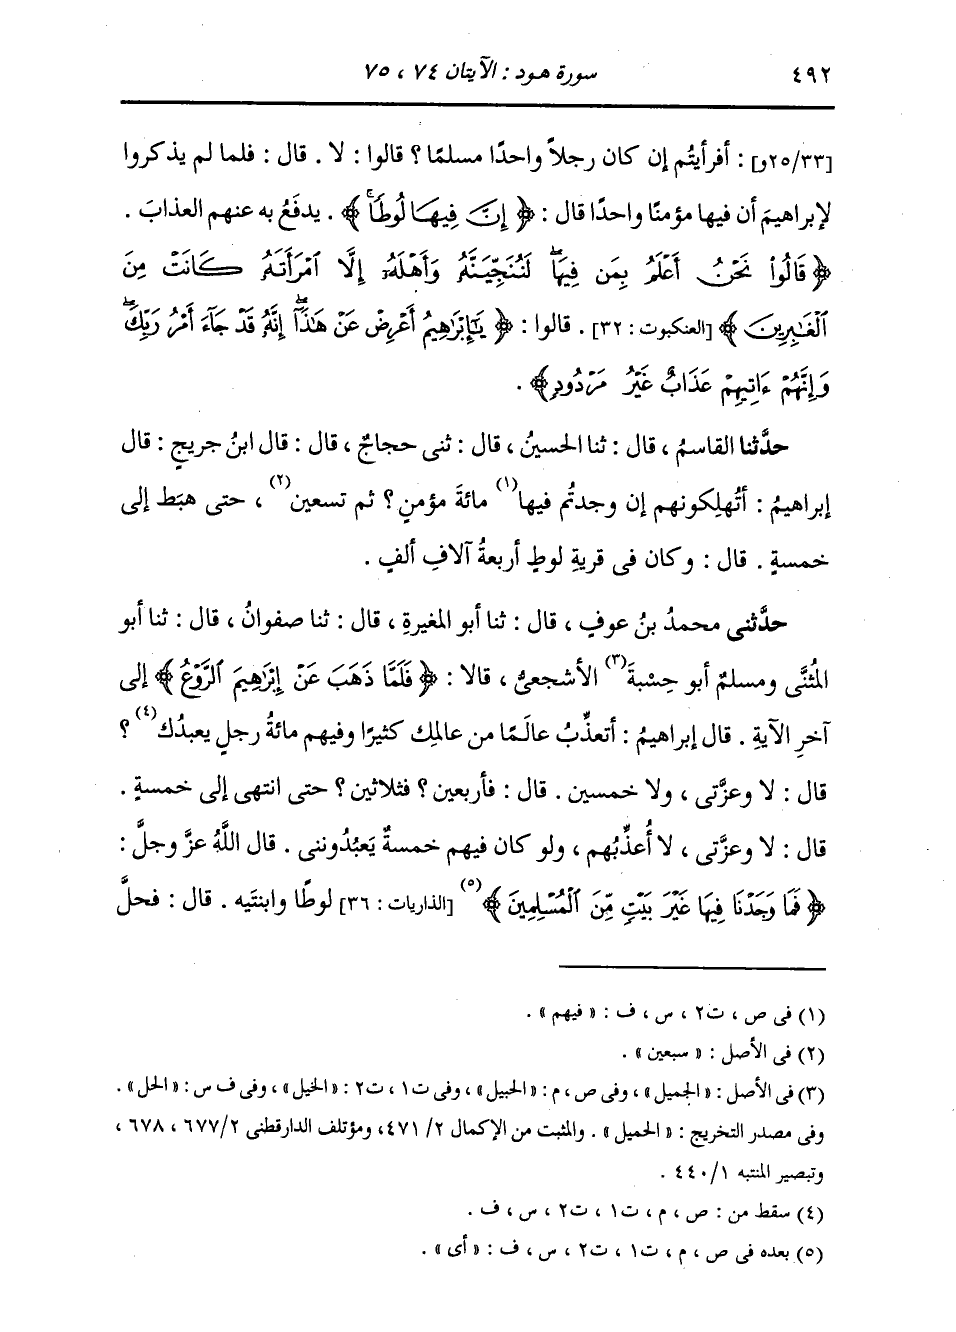 ٤٩٢ سورة هود : الآيتان ٧٤ ، ٧٥
[٢٥/٣٣و] : أفرأيتُم إن كان رجلاً واحدًا مسلمًا ؟ قالوا : لا . قال : فلما لم يذكروا
لإبراهيمَ أن فيها مؤمنًا واحدًا قال : ﴿ إِنَّ فِيهَا لُوطًا ﴾ . يدفَعُ به عنهم العذابَ .
﴿ قَالُوا۟ نَحْنُ أَعْلَمُ بِمَن فِيهَا ۖ لَنُنَجِّيَنَّهُۥ وَأَهْلَهُۥٓ إِلَّا ٱمْرَأَتَهُۥ كَانَتْ مِنَ
ٱلْغَـٰبِرِينَ ﴾ [العنكبوت : ٣٢] . قالوا : ﴿ يَـٰٓإِبْرَٰهِيمُ أَعْرِضْ عَنْ هَـٰذَآ ۖ إِنَّهُۥ قَدْ جَآءَ أَمْرُ رَبِّكَ ۖ
وَإِنَّهُمْ ءَاتِيهِمْ عَذَابٌ غَيْرُ مَرْدُودٍ ﴾ .
حدَّثنا القاسمُ ، قال : ثنا الحسينُ ، قال : ثنى حجاجٌ ، قال : قال ابنُ جريجٍ : قال
إبراهيمُ : أتُهلِكونهم إن وجدتُم فيها (١) مائةَ مؤمنٍ ؟ ثم تسعين (٢) ، حتى هبَط إلى
خمسةٍ . قال : وكان فى قريةِ لوطٍ أربعةُ آلافِ ألفٍ .
حدَّثنى محمدُ بنُ عوفٍ ، قال : ثنا أبو المغيرةِ ، قال : ثنا صفوانُ ، قال : ثنا أبو
المُثنَّى ومسلمٌ أبو حِسْبةَ (٣) الأشجعىُّ ، قالا : ﴿ فَلَمَّا ذَهَبَ عَنْ إِبْرَٰهِيمَ ٱلرَّوْعُ ﴾ إلى
آخرِ الآيةِ . قال إبراهيمُ : أتعذِّبُ عالَمًا من عالمِك كثيرًا وفيهم مائةُ رجلٍ يعبدُك (٤) ؟
قال : لا وعزَّتى ، ولا خمسين . قال : فأربعين ؟ فثلاثين ؟ حتى انتهى إلى خمسةٍ .
قال : لا وعزَّتى ، لا أُعذِّبُهم ، ولو كان فيهم خمسةٌ يَعبُدُوننى . قال اللَّهُ عزَّ وجلَّ :
﴿ فَمَا وَجَدْنَا فِيهَا غَيْرَ بَيْتٍ مِّنَ ٱلْمُسْلِمِينَ ﴾ (٥) [الذاريات : ٣٦] لوطًا وابنتَيه . قال : فحلَّ
(١) فى ص ، ت٢ ، س ، ف : « فيهم » .
(٢) فى الأصل : « سبعين » .
(٣) فى الأصل : « الجميل » ، وفى ص ، م : « الحبيل » ، وفى ت١ ، ت٢ : « الخيل » ، وفى ف س : « الحل » .
وفى مصدر التخريج : « الحميل » . والمثبت من الإكمال ٢/ ٤٧١، ومؤتلف الدارقطنى ٦٧٧/٢ ، ٦٧٨ ،
وتبصير المنتبه ٤٤٠/١ .
(٤) سقط من : ص ، م ، ت١ ، ت٢ ، س ، ف .
(٥) بعده فى ص ، م ، ت١ ، ت٢ ، س ، ف : « أى » .